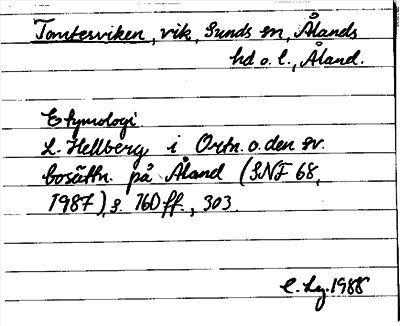 Tomtesviken, vik, Sunds sn, Ålands
hd o. l., Åland.
Etymologi
L. Hellberg i Ortn. o. den sv.
bosättn. på Åland (SNF 68,
1987), s. 160 ff., 303.
C. Hg. 1988